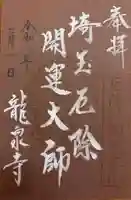 奉拝
埼玉厄除
開運大師
龍泉寺
令和 年
月 日